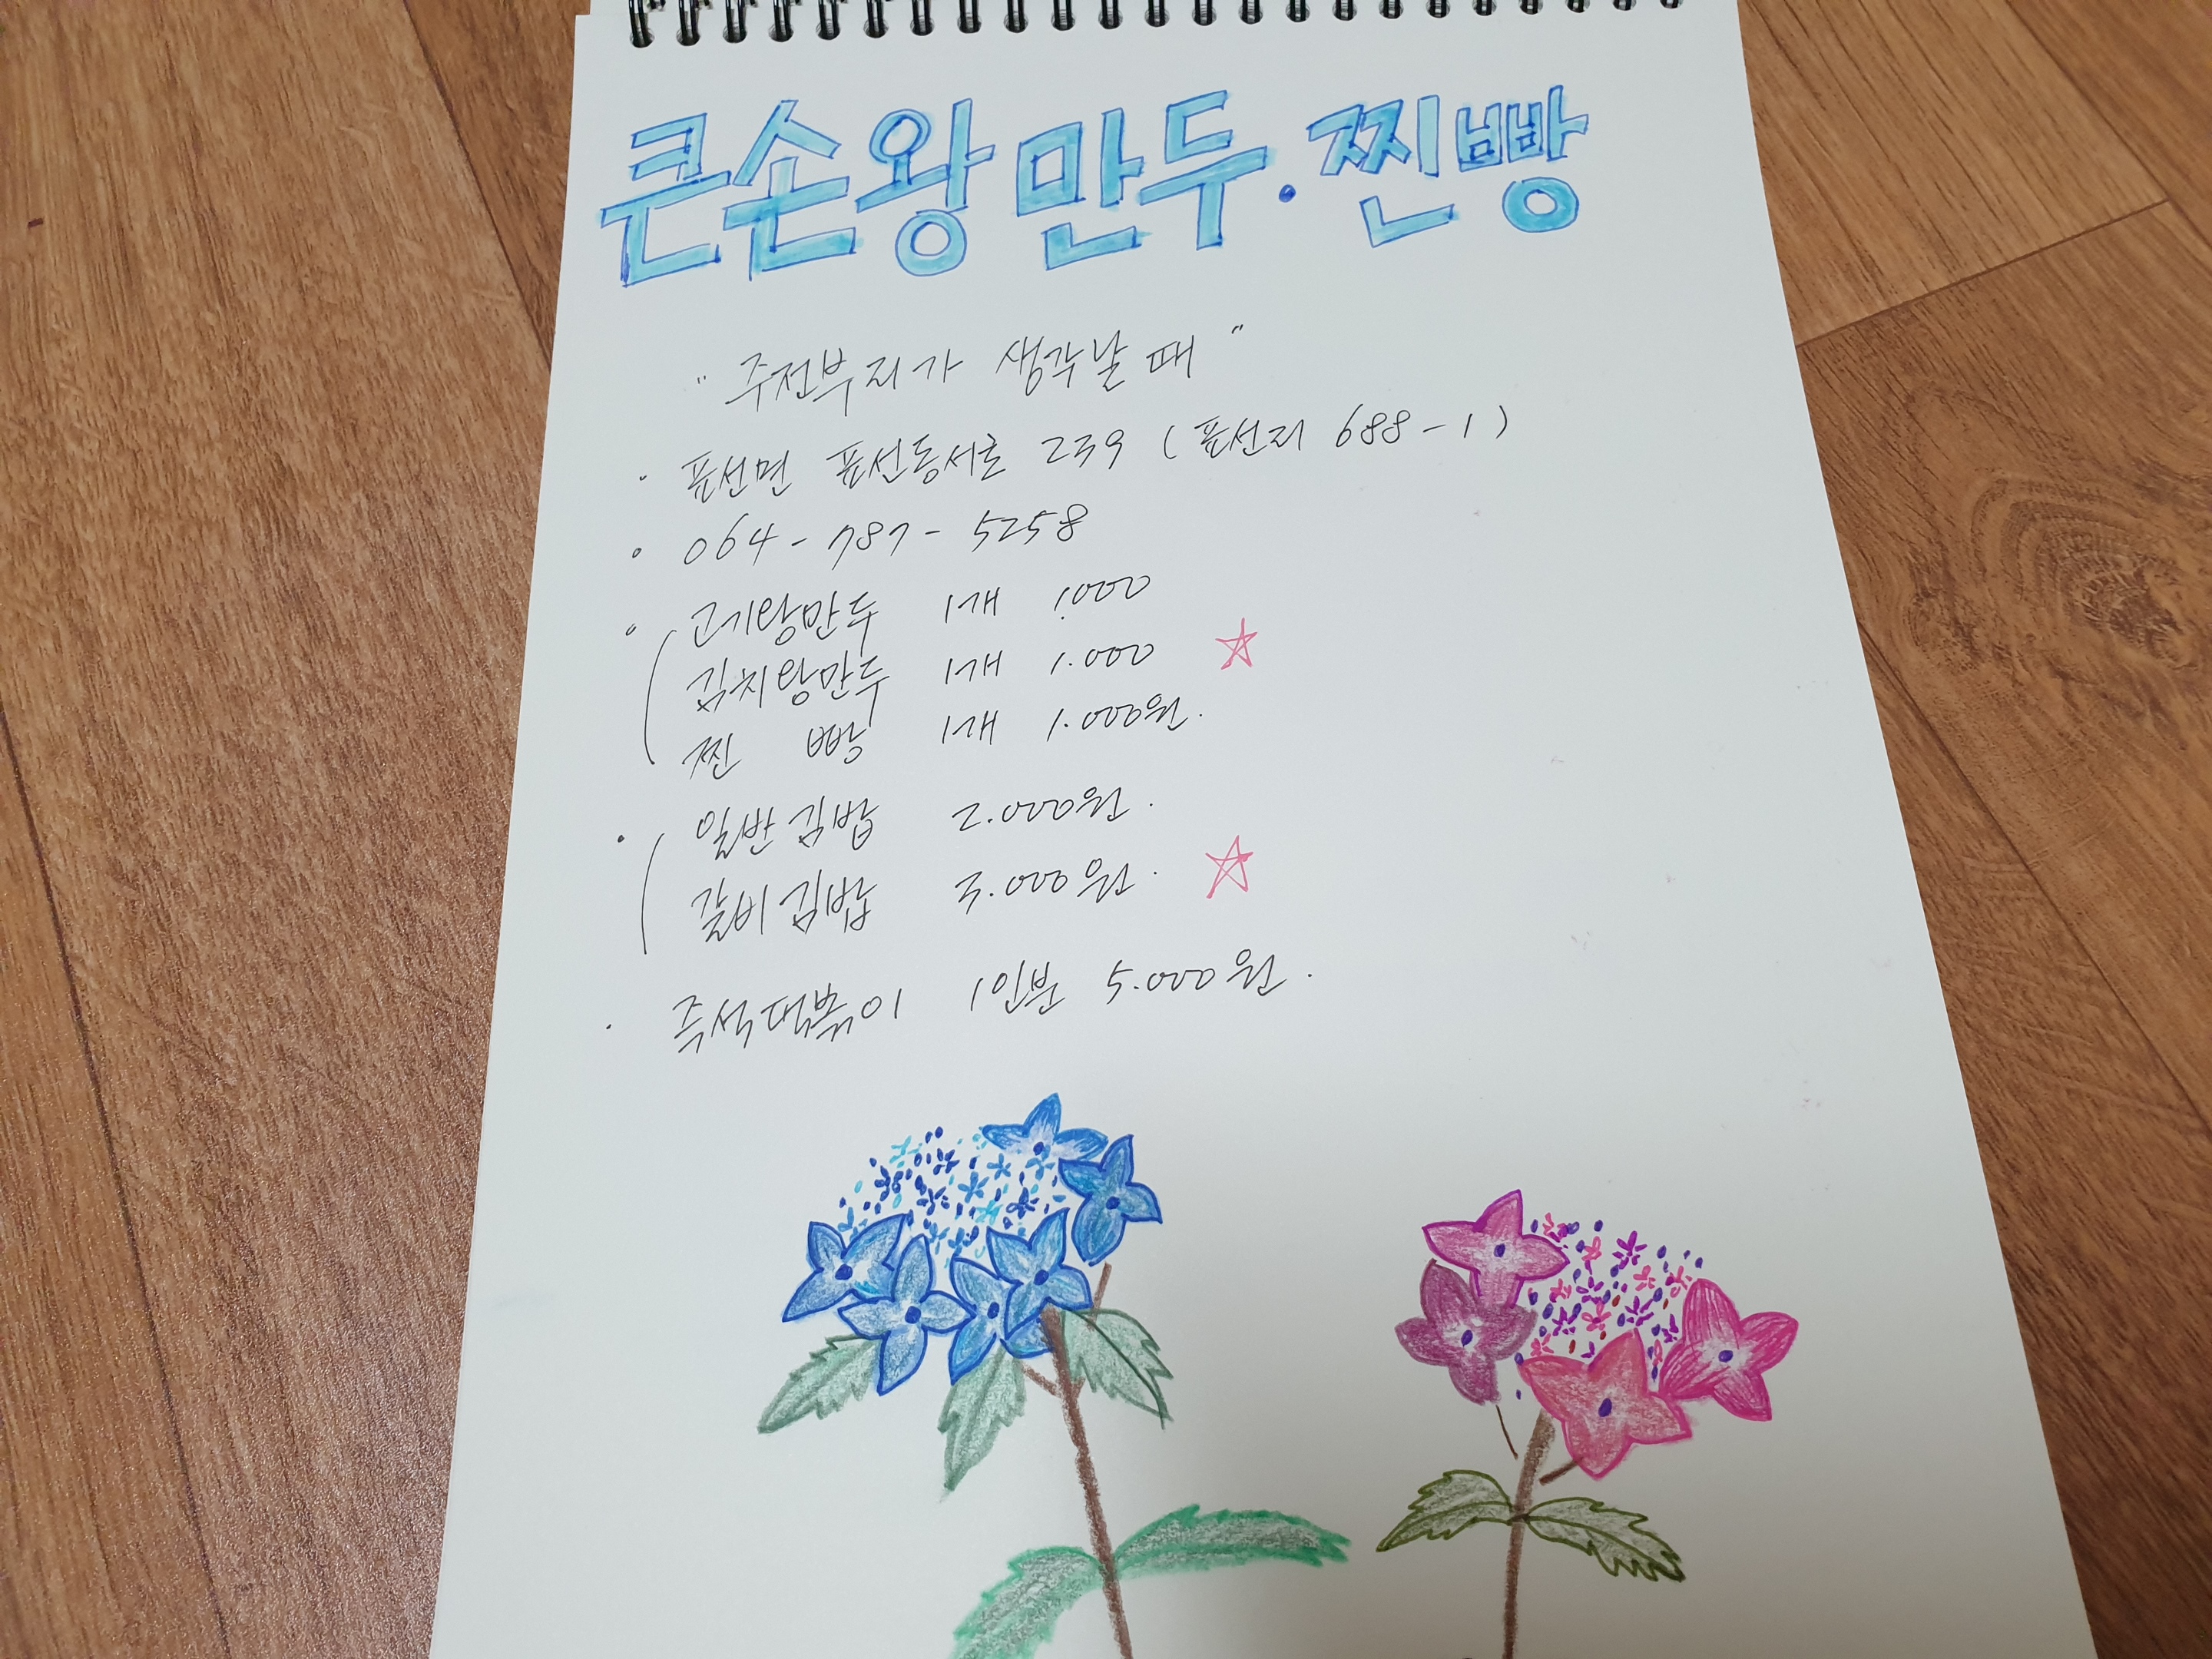 큰손왕만두·찐빵
"주전부리가 생각날 때"
· 표선면 표선동서로 239 (표선리 688-1)
· 064-787-5258
· 고기왕만두 1개 1.000
김치왕만두 1개 1.000 ☆
찐 빵 1개 1.000원.
· 일반김밥 2.000원.
갈비김밥 3.000원. ☆
· 즉석떡볶이 1인분 5.000원.